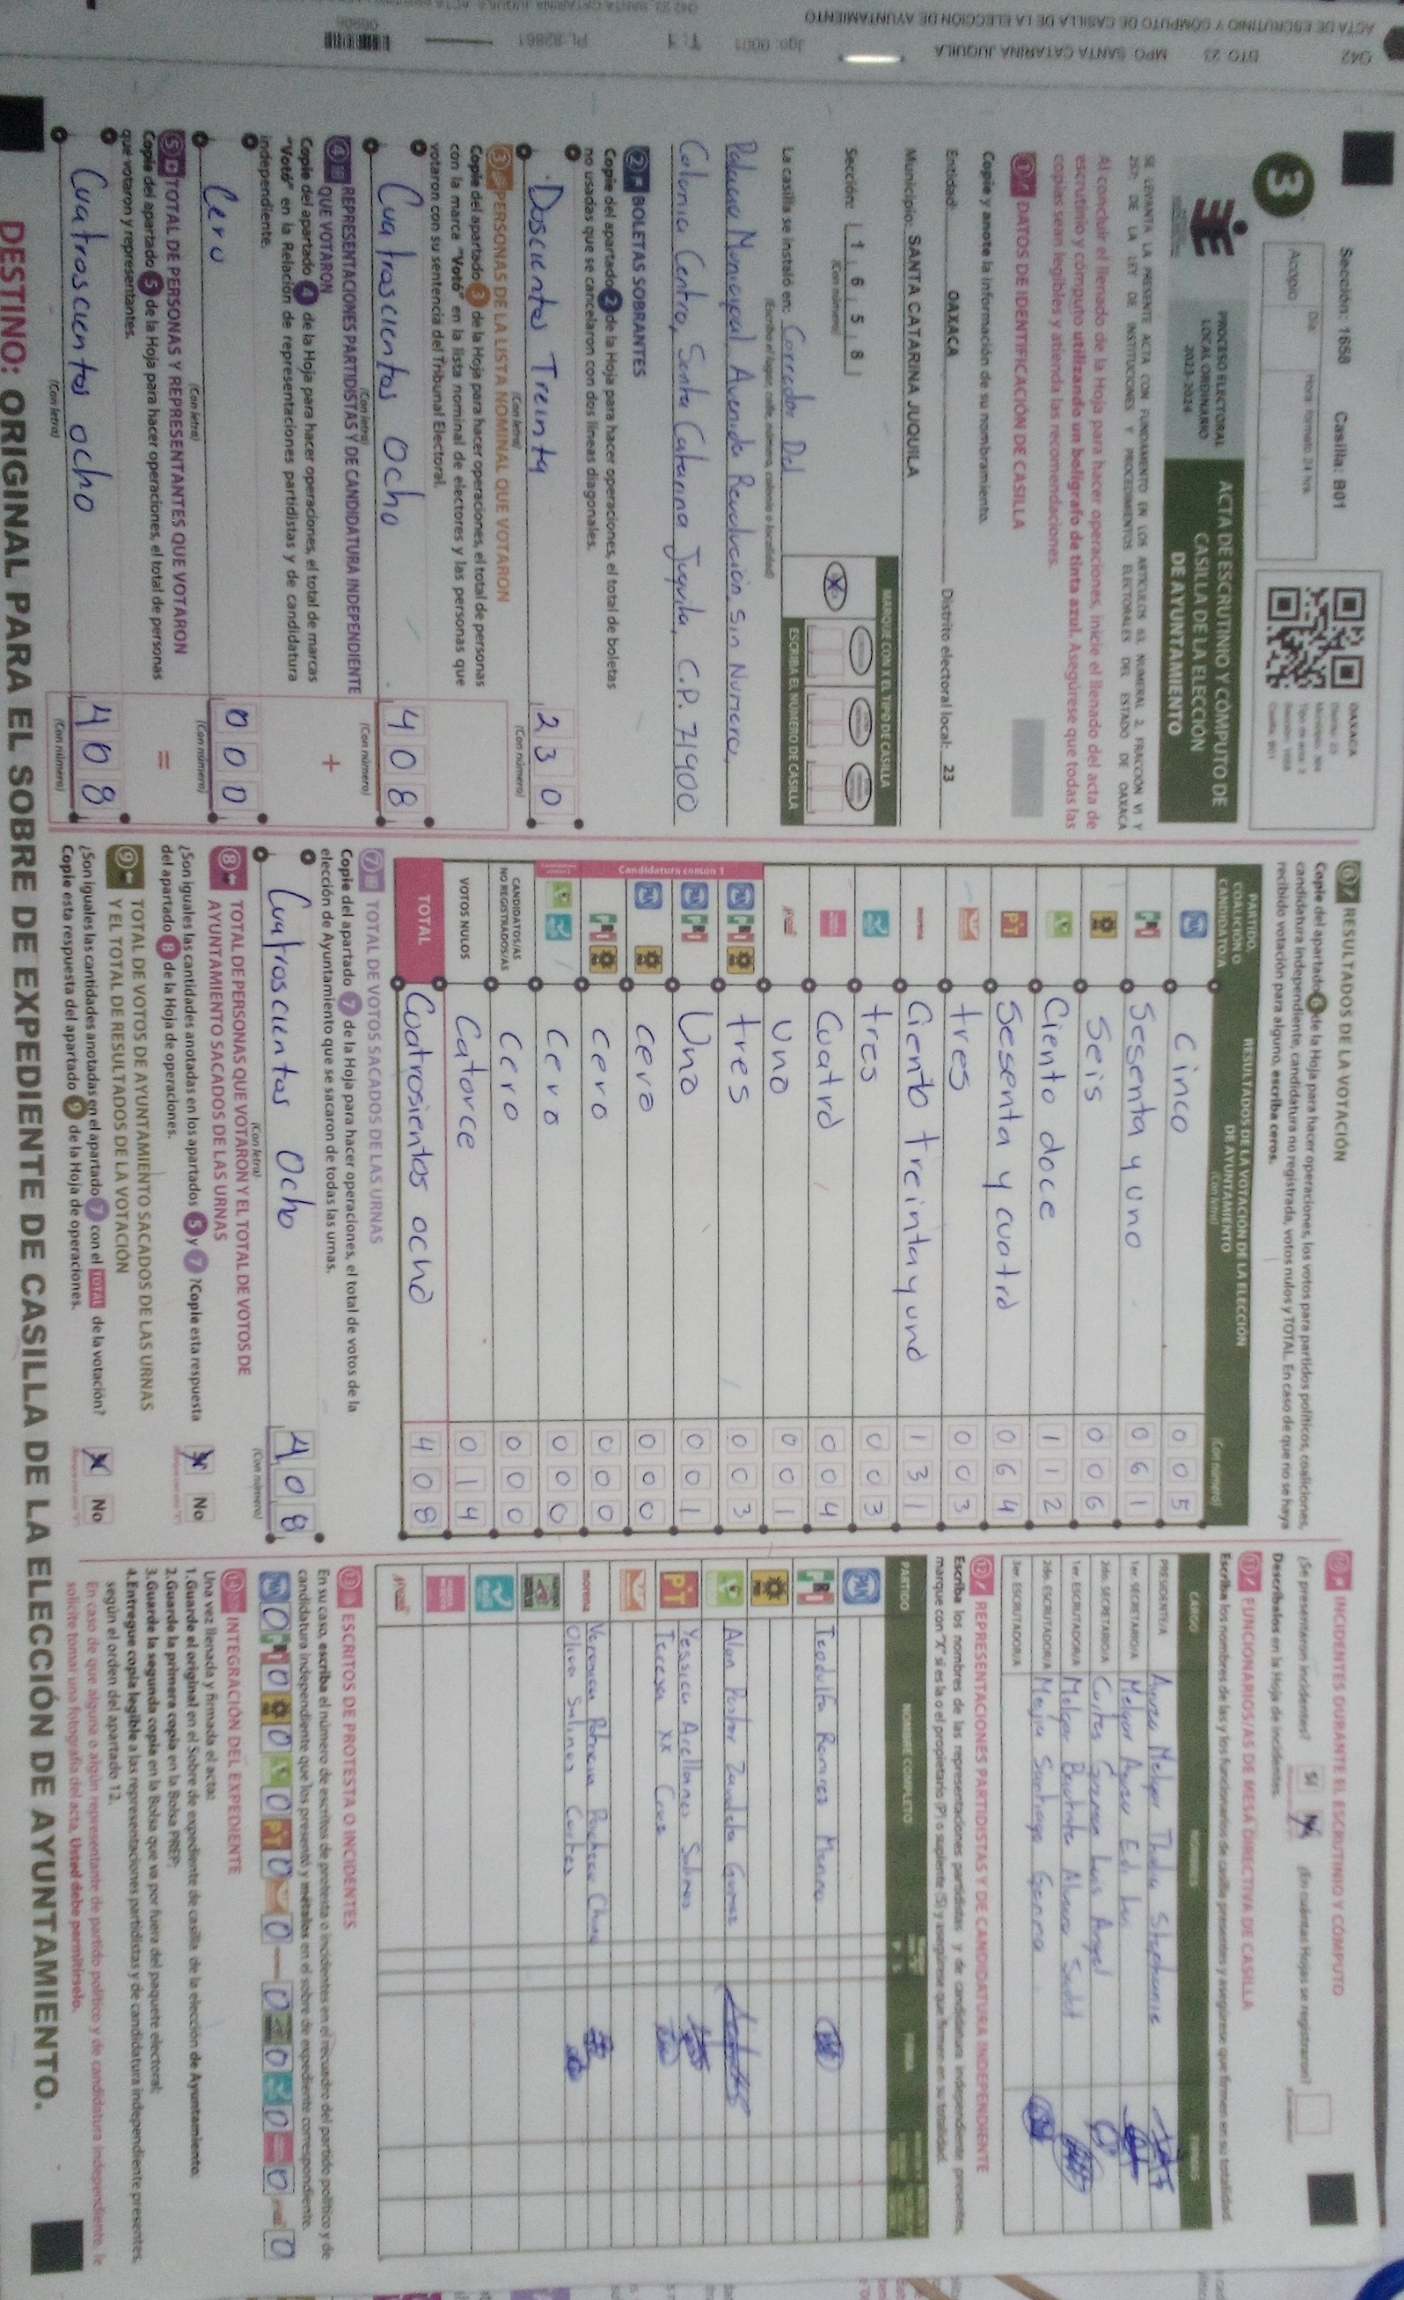 ACTA DE ESCRUTINIO Y CÓMPUTO DE CASILLA DE LA ELECCIÓN DE AYUNTAMIENTO
042 DTO. 23 MPO. SANTA CATARINA JUQUILA
Sección: 1658 Casilla: B01
Acopio
Día
Hora formato 24 hrs.
OAXACA
3
PROCESO ELECTORAL
LOCAL ORDINARIO
2023-2024
ACTA DE ESCRUTINIO Y CÓMPUTO DE
CASILLA DE LA ELECCIÓN
DE AYUNTAMIENTO
SE LEVANTA LA PRESENTE ACTA CON FUNDAMENTO EN LOS ARTÍCULOS 63, NUMERAL 2, FRACCIÓN VI Y
257 DE LA LEY DE INSTITUCIONES Y PROCEDIMIENTOS ELECTORALES DEL ESTADO DE OAXACA
Al concluir el llenado de la Hoja para hacer operaciones, inicie el llenado del acta de
escrutinio y cómputo utilizando un bolígrafo de tinta azul. Asegúrese que todas las
copias sean legibles y atienda las recomendaciones.
1 DATOS DE IDENTIFICACIÓN DE CASILLA
Copie y anote la información de su nombramiento.
Entidad: OAXACA Distrito electoral local: 23
Municipio: SANTA CATARINA JUQUILA
Sección: 1 6 5 8
(Con número)
MARQUE CON X EL TIPO DE CASILLA
ESCRIBA EL NÚMERO DE CASILLA
La casilla se instaló en: Corredor Del
(Escriba el lugar, calle, número, colonia o localidad)
Palacio Municipal Avenida Revolución, Sin Numero,
Colonia Centro, Santa Catarina Juquila, C.P. 71900
2 BOLETAS SOBRANTES
Copie del apartado 2 de la Hoja para hacer operaciones, el total de boletas
no usadas que se cancelaron con dos líneas diagonales.
Doscientos Treinta 2 3 0
(Con letra) (Con número)
3 PERSONAS DE LA LISTA NOMINAL QUE VOTARON
Copie del apartado 3 de la Hoja para hacer operaciones, el total de personas
con la marca "Votó" en la lista nominal de electores y las personas que
votaron con su sentencia del Tribunal Electoral.
Cuatroscientos Ocho 4 0 8
(Con letra) (Con número)
4 REPRESENTACIONES PARTIDISTAS Y DE CANDIDATURA INDEPENDIENTE
QUE VOTARON
Copie del apartado 4 de la Hoja para hacer operaciones, el total de marcas
"Votó" en la Relación de representaciones partidistas y de candidatura
independiente.
+
Cero 0 0 0
(Con letra) (Con número)
5 TOTAL DE PERSONAS Y REPRESENTANTES QUE VOTARON
Copie del apartado 5 de la Hoja para hacer operaciones, el total de personas
que votaron y representantes.
=
Cuatroscientos ocho 4 0 8
(Con letra) (Con número)
6 RESULTADOS DE LA VOTACIÓN
Copie del apartado 6 de la Hoja para hacer operaciones, los votos para partidos políticos, coaliciones,
candidatura independiente, candidatura no registrada, votos nulos y TOTAL. En caso de que no se haya
recibido votación para alguno, escriba ceros.
PARTIDO, COALICIÓN O CANDIDATO/A
RESULTADOS DE LA VOTACIÓN DE LA ELECCIÓN DE AYUNTAMIENTO
(Con letra) (Con número)
PAN Cinco 0 0 5
PRI Sesenta y uno 0 6 1
Seis 0 0 6
Ciento doce 1 1 2
PT Sesenta y cuatro 0 6 4
tres 0 0 3
morena Ciento treinta y uno 1 3 1
tres 0 0 3
Cuatro 0 0 4
Uno 0 0 1
Candidatura común 1
PAN PRI tres 0 0 3
PAN PRI Uno 0 0 1
PAN cero 0 0 0
PRI cero 0 0 0
Cero 0 0 0
CANDIDATOS/AS NO REGISTRADOS/AS Cero 0 0 0
VOTOS NULOS Catorce 0 1 4
TOTAL Cuatrosientos ocho 4 0 8
7 TOTAL DE VOTOS SACADOS DE LAS URNAS
Copie del apartado 7 de la Hoja para hacer operaciones, el total de votos de la
elección de Ayuntamiento que se sacaron de todas las urnas.
Cuatroscientos Ocho 4 0 8
(Con letra) (Con número)
8 TOTAL DE PERSONAS QUE VOTARON Y EL TOTAL DE VOTOS DE
AYUNTAMIENTO SACADOS DE LAS URNAS
¿Son iguales las cantidades anotadas en los apartados 5 y 7? Copie esta respuesta
del apartado 8 de la Hoja de operaciones.
No
9 TOTAL DE VOTOS DE AYUNTAMIENTO SACADOS DE LAS URNAS
Y EL TOTAL DE RESULTADOS DE LA VOTACIÓN
¿Son iguales las cantidades anotadas en el apartado 7 con el TOTAL de la votación?
Copie esta respuesta del apartado 9 de la Hoja de operaciones.
No
10 INCIDENTES DURANTE EL ESCRUTINIO Y CÓMPUTO
¿Se presentaron incidentes? Sí ¿En cuántas Hojas se registraron?
Descríbalos en la Hoja de incidentes.
11 FUNCIONARIOS/AS DE MESA DIRECTIVA DE CASILLA
Escriba los nombres de las y los funcionarios de casilla presentes y asegúrese que firmen en su totalidad.
CARGO NOMBRES FIRMAS
PRESIDENTE/A Melgar Thalia Stephanie
1er. SECRETARIO/A Melgar
2do. SECRETARIO/A Cortes Luis Angel
1er. ESCRUTADOR/A Melgar
2do. ESCRUTADOR/A Mejia Santiago Gemma
3er. ESCRUTADOR/A
12 REPRESENTACIONES PARTIDISTAS Y DE CANDIDATURA INDEPENDIENTE
Escriba los nombres de las representaciones partidistas y de candidatura independiente presentes,
marque con "X" si es la o el propietario (P) o suplente (S) y asegúrese que firmen en su totalidad.
PARTIDO NOMBRE COMPLETO FIRMA
PAN
PRI Teodulfo Ramires Merino
Alan Pastor Zavaleta Gomez
PT Yessica Arellanes Salinas
Teresa xx Cruz
morena Veronica Patricia Pacheco Chavez
Oliva Salinas Cortes
13 ESCRITOS DE PROTESTA O INCIDENTES
En su caso, escriba el número de escritos de protesta o incidentes en el recuadro del partido político y de
candidatura independiente que los presentó y métalos en el sobre de expediente correspondiente.
PAN 0 PRI 0 0 0 PT 0 0 0 0 0 0 0
14 INTEGRACIÓN DEL EXPEDIENTE
Una vez llenada y firmada el acta:
1. Guarde el original en el Sobre de expediente de casilla de la elección de Ayuntamiento.
2. Guarde la primera copia en la Bolsa PREP;
3. Guarde la segunda copia en la Bolsa que va por fuera del paquete electoral;
4. Entregue copia legible a las representaciones partidistas y de candidatura independiente presentes,
según el orden del apartado 12.
En caso de que alguna o algún representante de partido político y de candidatura independiente, le
solicite tomar una fotografía del acta, Usted debe permitírselo.
DESTINO: ORIGINAL PARA EL SOBRE DE EXPEDIENTE DE CASILLA DE LA ELECCIÓN DE AYUNTAMIENTO.